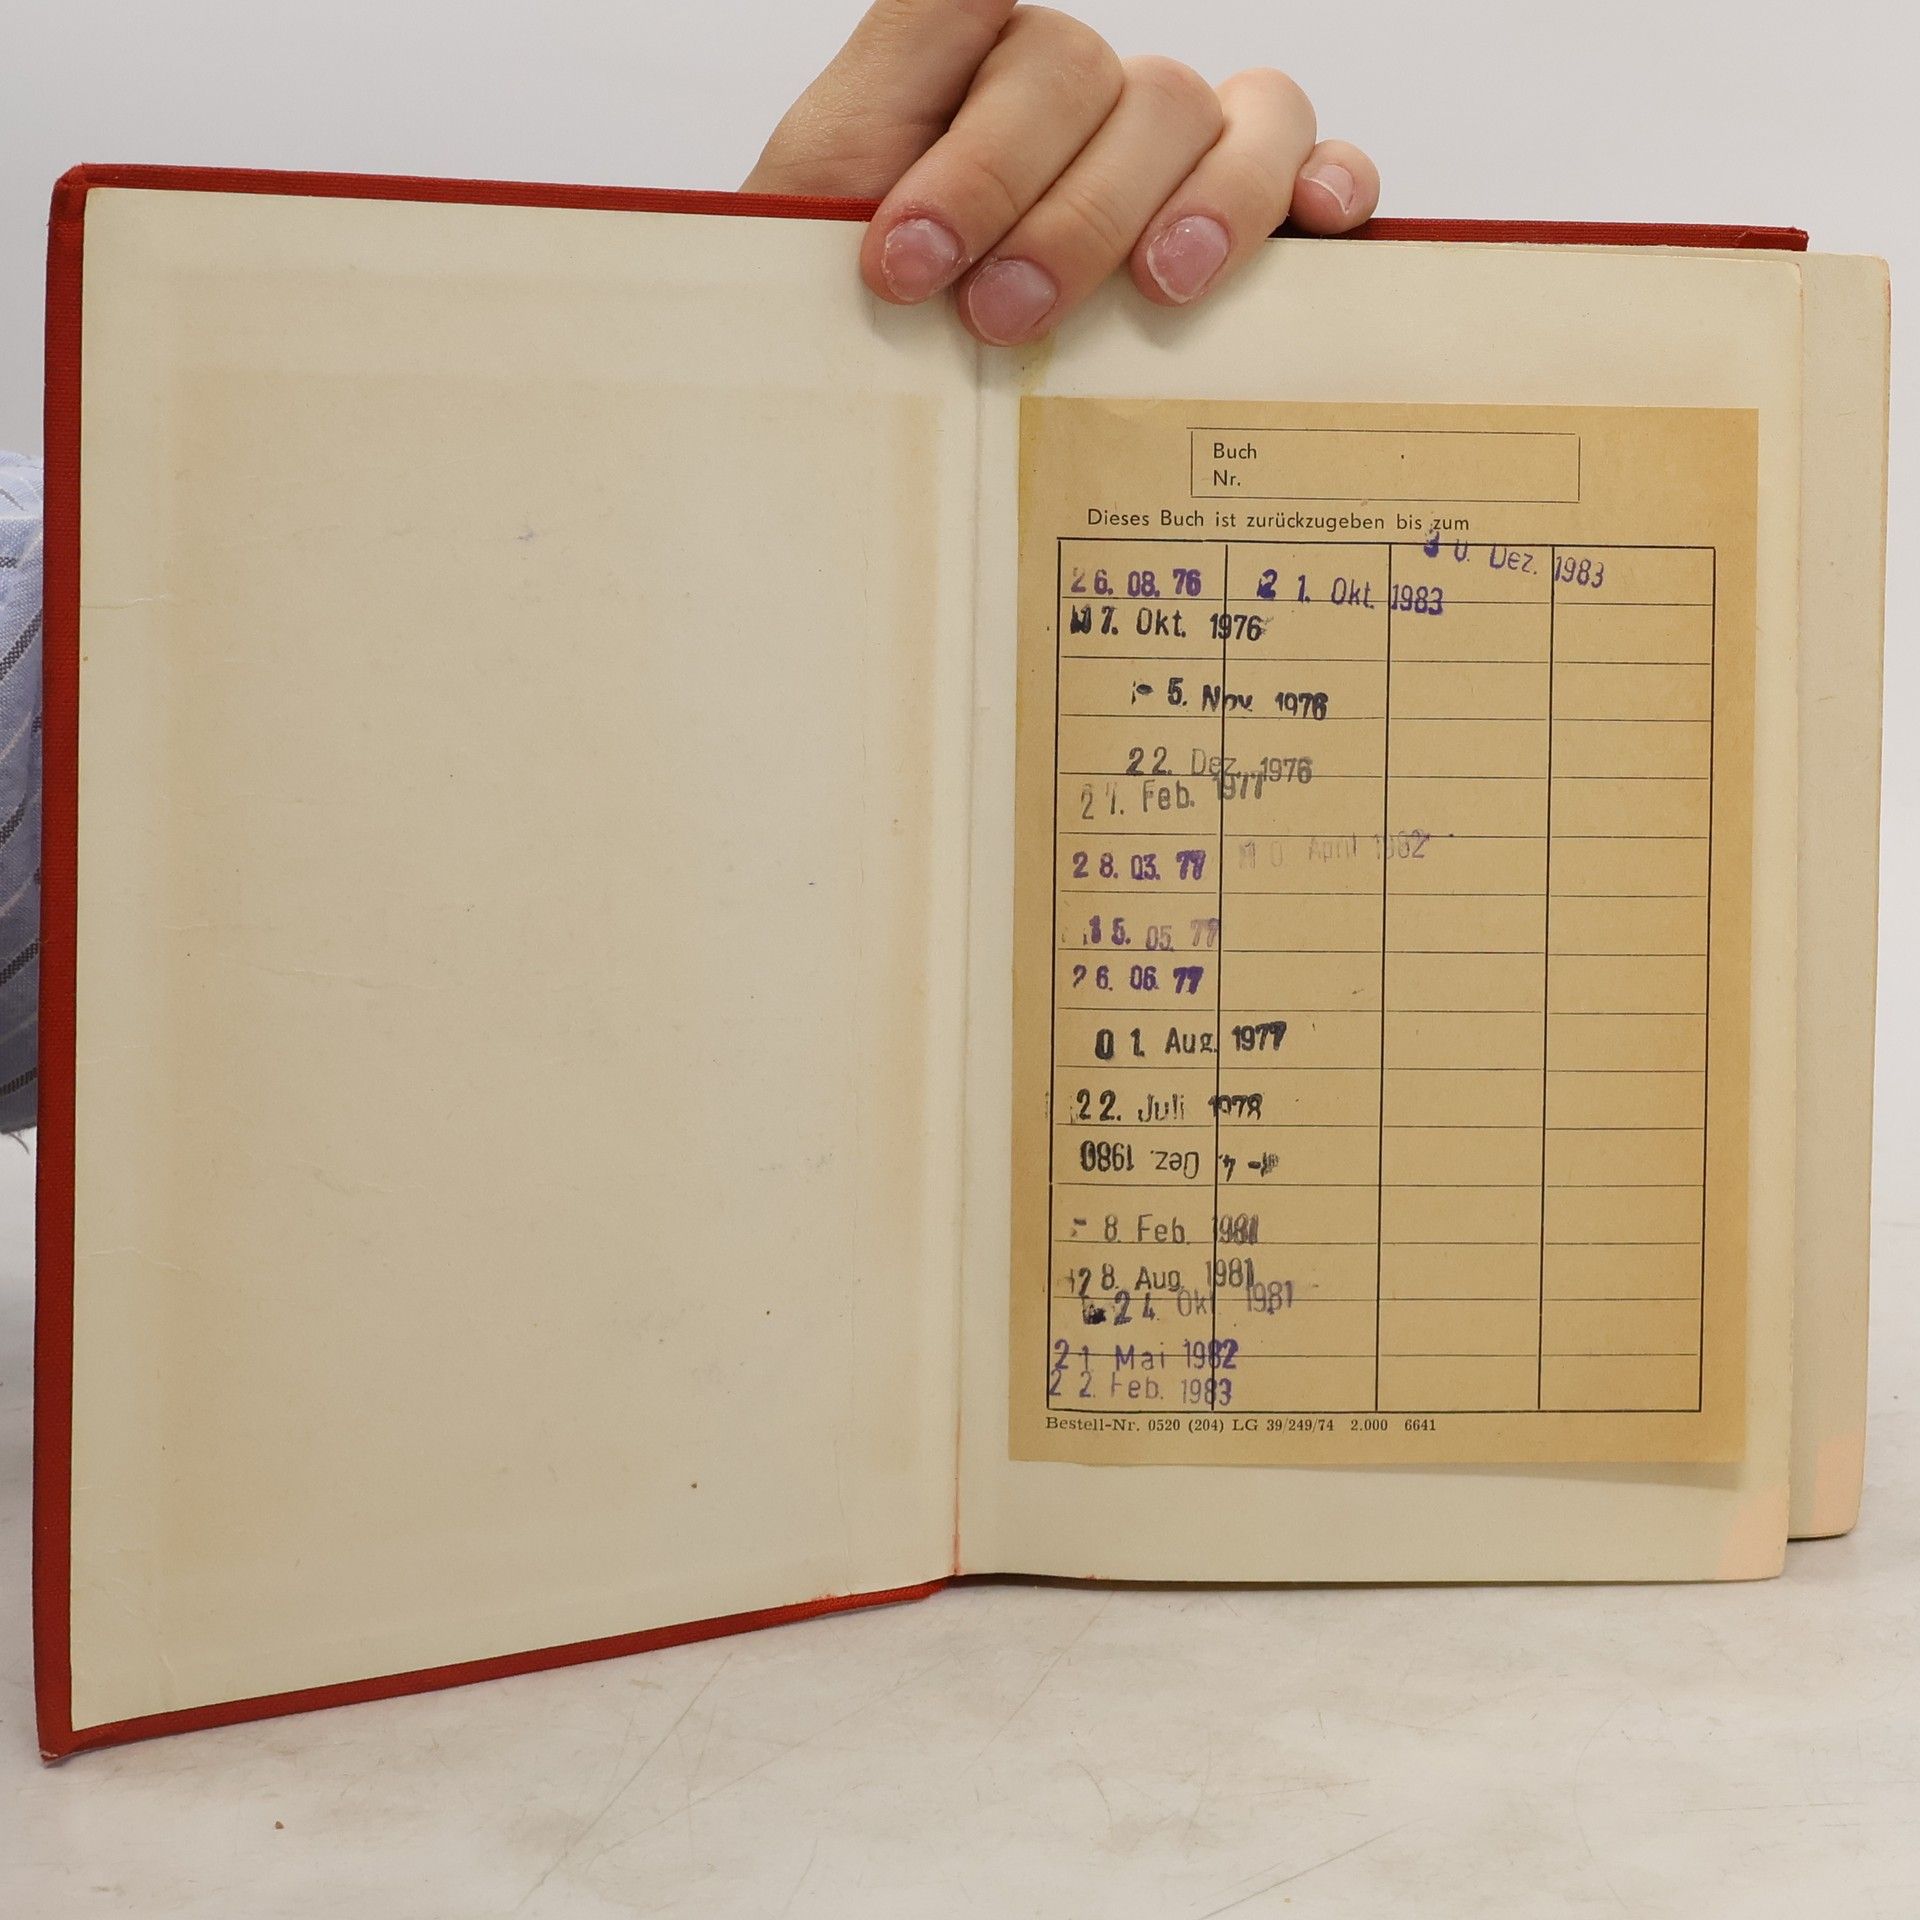 Buch
Nr.
Dieses Buch ist zurückzugeben bis zum
30. Dez. 1983
26. 08. 76 21. Okt. 1983
7. Okt. 1976
- 5. Nov. 1976
22. Dez. 1976
27. Feb. 1977
28. 03. 77 April 1982
15. 05. 77
26. 06. 77
01. Aug. 1977
22. Juli 1978
- 4. Dez. 1980
- 8. Feb. 1981
28. Aug. 1981
24. Okt. 1981
21 Mai 1982
22. Feb. 1983
Bestell-Nr. 0520 (204) LG 39/249/74 2.000 6641